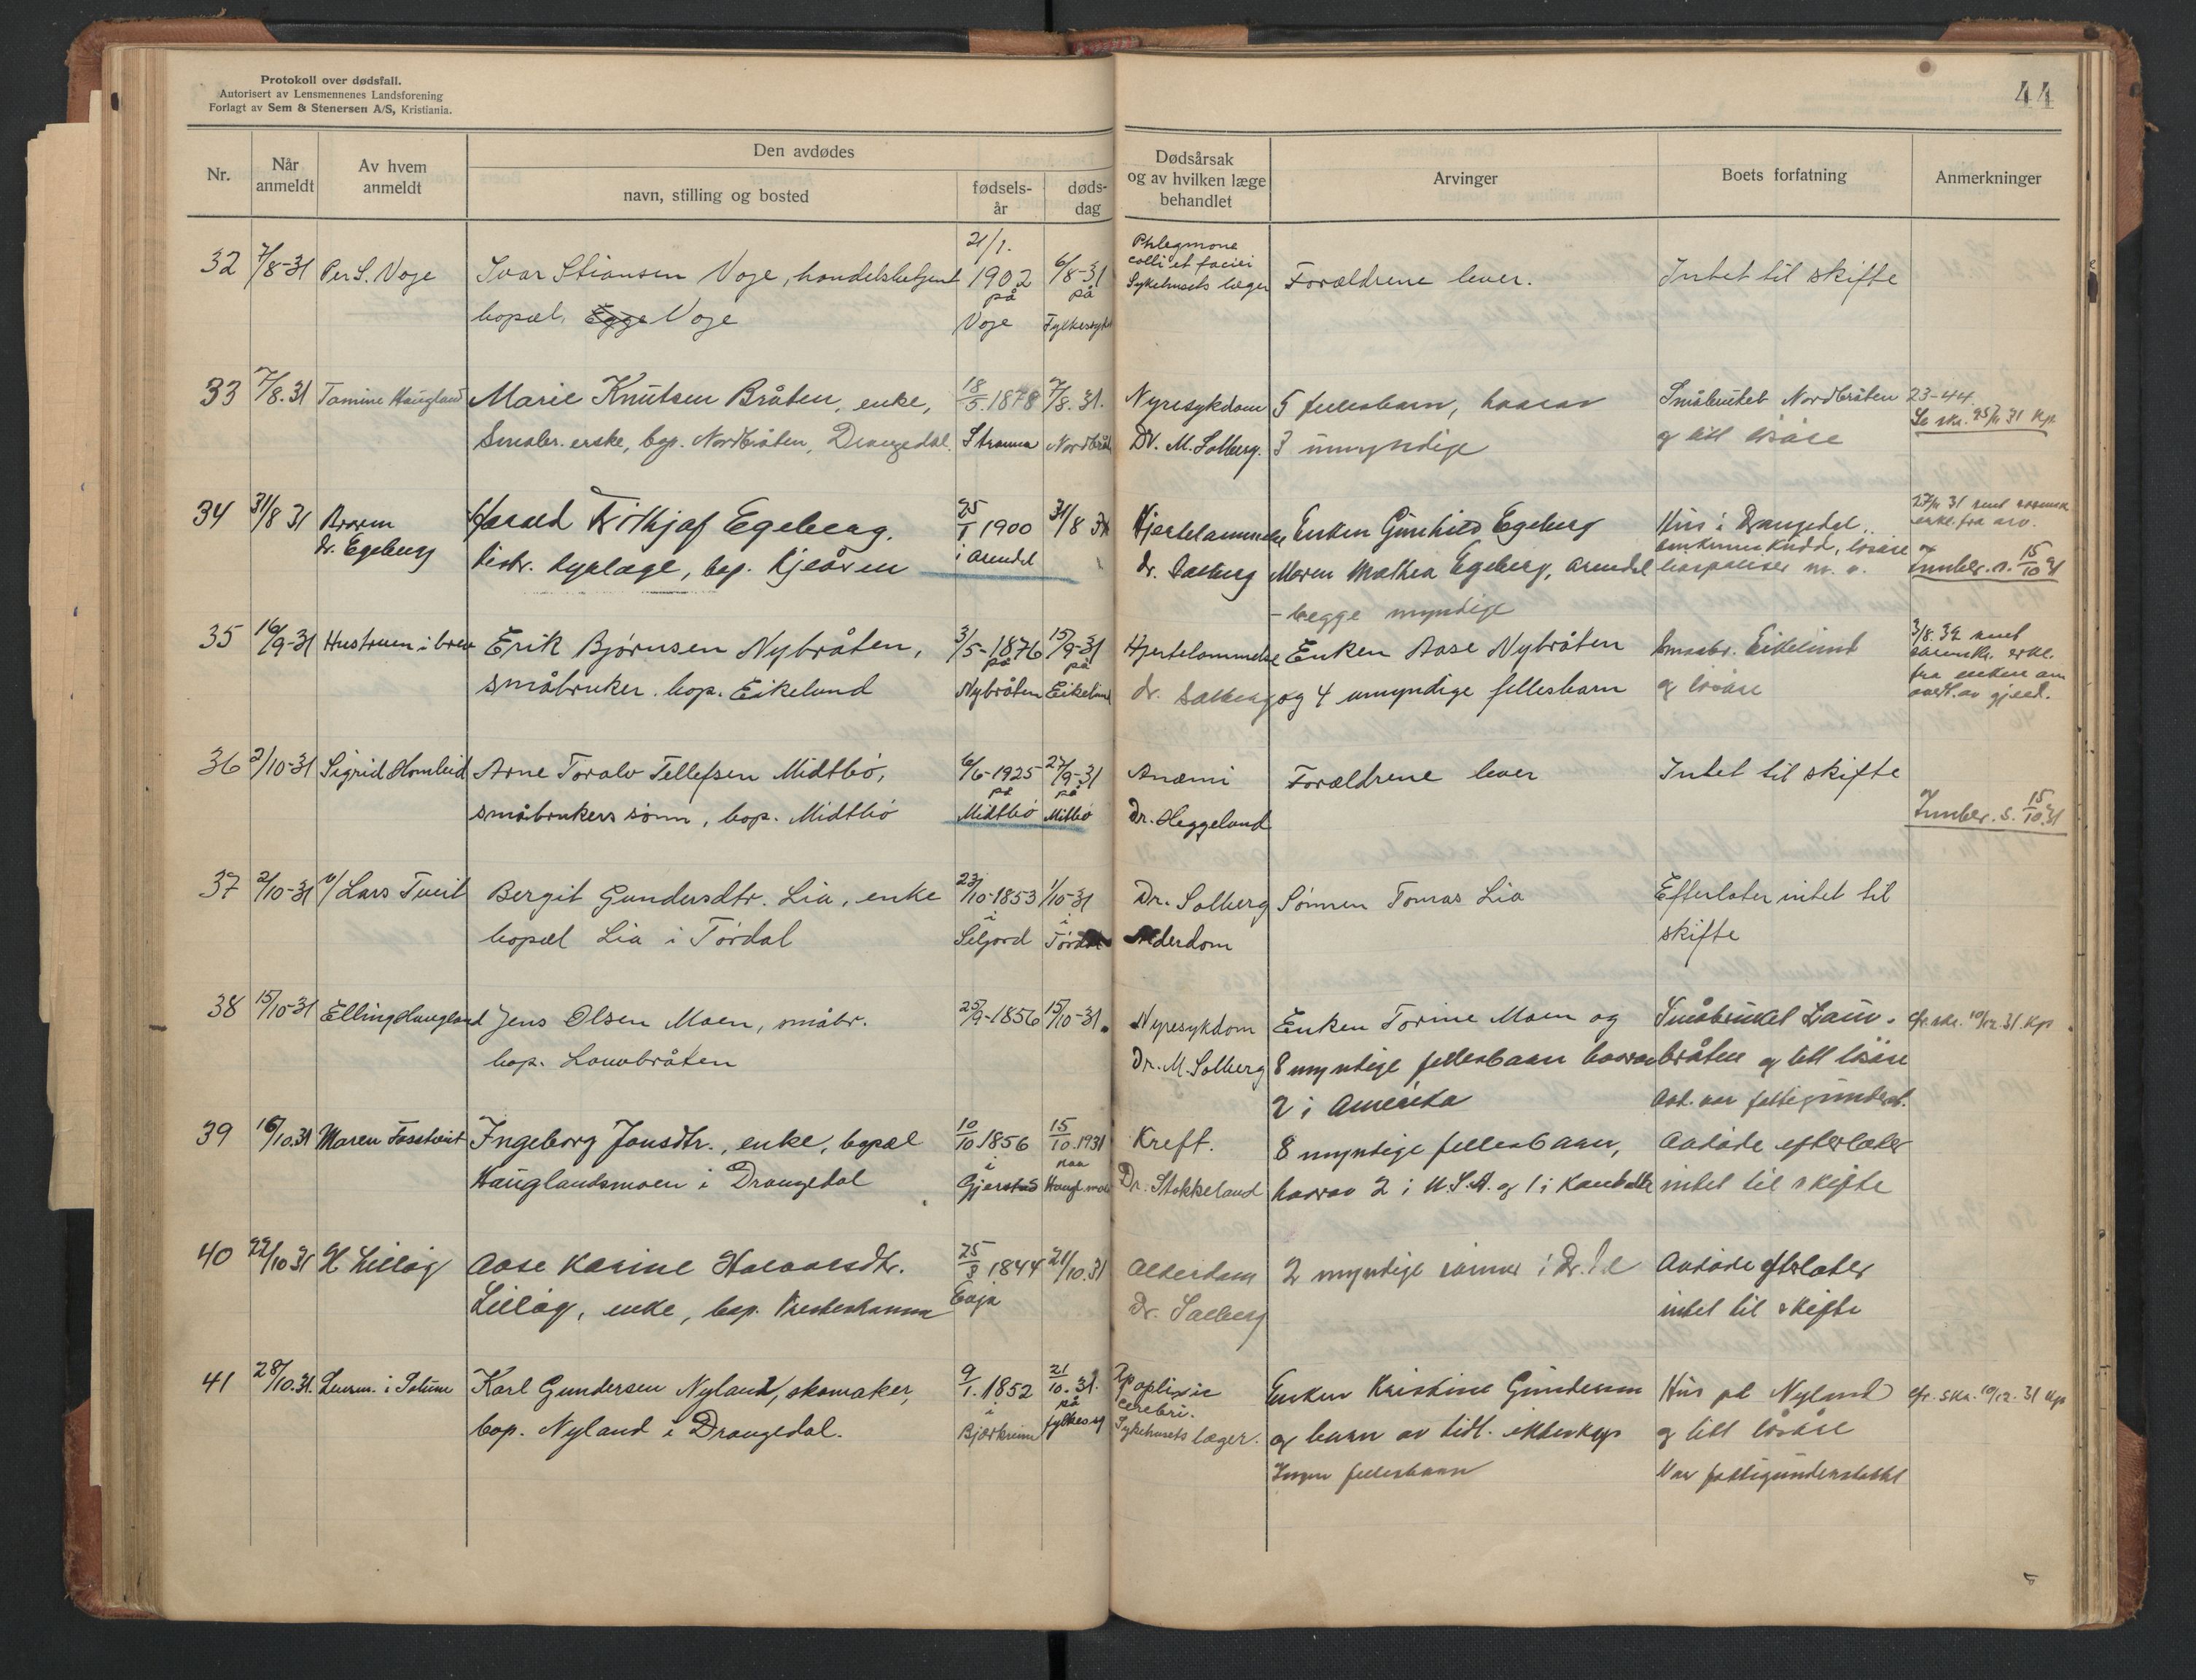 Protokoll over dødsfall.
Autorisert av Lensmennenes Landsforening
Forlagt av Sem & Stenersen A/S, Kristiania.
44
Nr.
Når anmeldt
Av hvem anmeldt
Den avdødes
navn, stilling og bosted
fødsels-år
døds-dag
Dødsårsak og av hvilken læge behandlet
Arvinger
Boets forfatning
Anmerkninger
32 7/8-31 Per S. Voje Ivar Stiansen Voje, handelsbetjent 21/1. 1902 6/8-31 Phlegmone colli et faciei Forældrene lever. Intet til skifte
bopæl, Voje på Voje på Fylkessyk Sykehusets læger
33 7/8.31 Tomine Haugland Marie Knutsen Bråten, enke, 18/5.1878 7/8.31. Nyresykdom 5 fellesbarn, hvorav Småbruket Nordbråten 23-44.
Småbr. erske, bop. Nordbråten, Drangedal. Strauma Nordbråt Dr. M. Solberg. 3 umyndige og litt løsøre
34 31/8 31 Broren Harald Frithjof Egeberg. 25/1 1900 31/8 31 Hjertelammelse Enken Gunhild Egeberg Hus i Drangedal.
dr. Egeberg distr. dyrlæge, bop. Kjeåsen i Arendal dr. Solberg Moren Mathea Egeberg, Arendal
- begge myndige
35 16/9-31 Hustruen i brev Erik Bjørnsen Nybråten, 3/5-1876 15/9-31 Hjertelammelse Enken Aase Nybråten Småbr. Eikelund 3/8.32 sendt
småbruker. bop. Eikelund på Nybråten på Eikelund dr. Solberg og 4 umyndige fellesbarn og løsøre
36 2/10-31 Sigrid Homleid Arne Toralv Tellefsen Midtbø, 6/6-1925 27/9-31 Anæmi Forældrene lever Intet til skifte
småbrukers sønn, bop. Midtbø på Midtbø på Mitbø Dr. Heggeland 15/10.31
37 2/10-31 v/ Lars Tveit Bergit Gundersdtr. Lia, enke 23/10-1853 1/10-31 Dr. Solberg Sønnen Tomas Lia Efterlater intet til
bopæl Lia i Tørdal i Seljord i Tørdal Alderdom skifte
38 15/10-31 Elling Haugland Jens Olsen Moen, småbr. 25/9-1856 15/10-31. Nyresykdom Enken Torine Moen og Småbruket Lauv-
bop. Lauvbråten Dr. M. Solberg 8 myndige fellesbarn hvorav bråten og litt løsøre
2 i Amerika Avd. var fattigunderst.
39 16/10.31 Maren Fosstveit Ingeborg Jonsdtr., enke, bopæl 10/10 1856 15/10.1931 Kreft. 8 myndige fellesbarn, Avdøde efterlater
Hauglandsmoen i Drangedal i Gjerstad paa Haugl.moen Dr. Stokkeland hvorav 2 i U.S.A. og 1 i intet til skifte
40 22/10 31 H Lilleög Aase Karine Halvorsdtr. 25/3 1844 21/10.31 Alderdom 2 myndige sønner i Dr.dal Avdøde efterlater
Lilleög, enke, bop. Prestestranna Dr. Solberg intet til skifte
41 28/10.31. Lensm. i Solum Karl Gundersen Nyland, skomaker, 9/1.1852 21/10.31. Apoplexie cerebri. Enken Kristine Gundersen Hus på Nyland
bop. Nyland i Drangedal. i Bjerkreim på fylkessy Sykehusets læger. og barn av tidl. ekteskap og litt løsøre
Ingen fellesbarn Var fattigunderstøttet